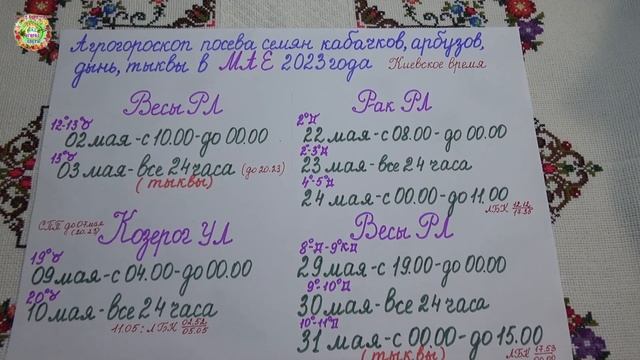 Агрогороскоп посева семян кабачков, арбузов,
дынь, тыквы в МАЕ 2023 года Киевское время
Весы РЛ
12°-13°♉
02 мая - с 10.00 - до 00.00
13°♉
03 мая - все 24 часа (до 20.23)
(тыквы)
СПП до 07 мая
(20.23)
Козерог УЛ
19°♉
09 мая - с 04.00 - до 00.00
20°♉
10 мая - все 24 часа
11.05: ЛБК 02.52
05.05
Рак РЛ
2°♊
22 мая - с 08.00 - до 00.00
2°-3°♊
23 мая - все 24 часа
4°-5°♊
24 мая - с 00.00 - до 11.00
ЛБК 12.12
Весы РЛ
8°♊-9°♊
29 мая - с 19.00 - до 00.00
9°-10°♊
30 мая - все 24 часа
10°-11°♊
31 мая - с 00.00 - до 15.00
(тыквы)
ЛБК 17.53